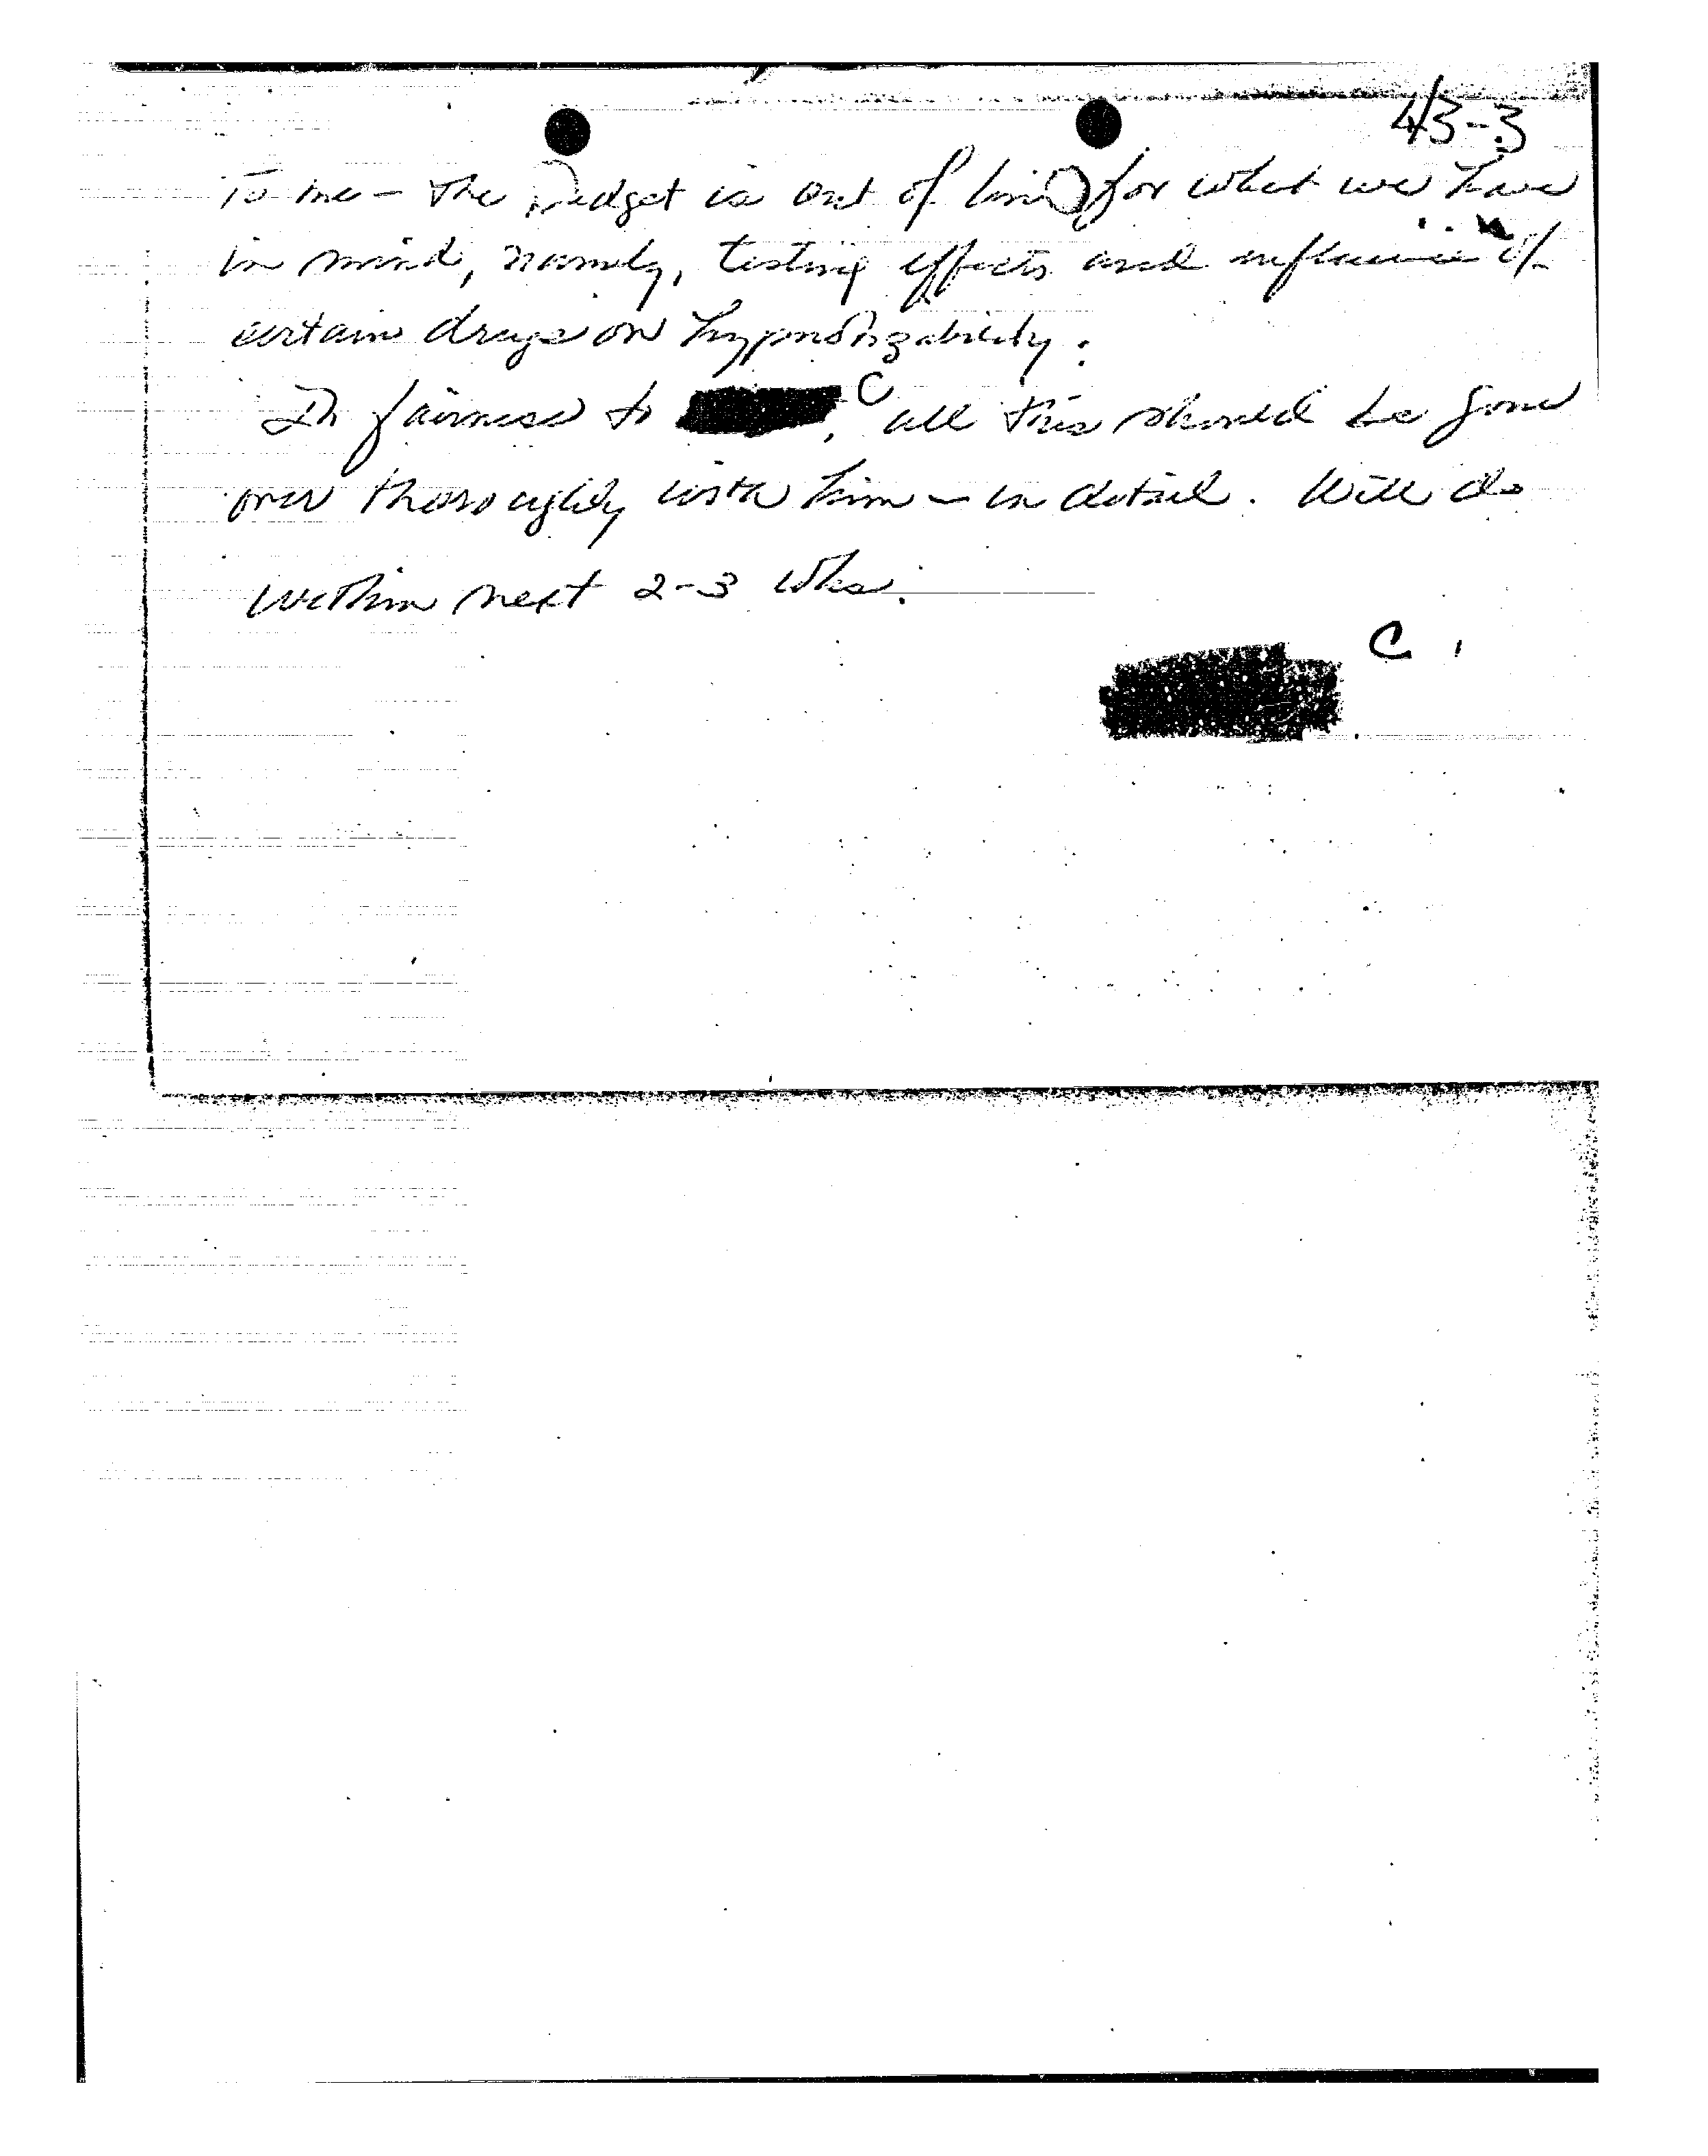 43-3
To me - the budget is out of line for what we have
in mind, namely, testing effects and influence of
certain drugs on hypnotizability.
In fairness to C, all this should be gone
over thoroughly with him - in detail. Will do
within next 2-3 wks.
C